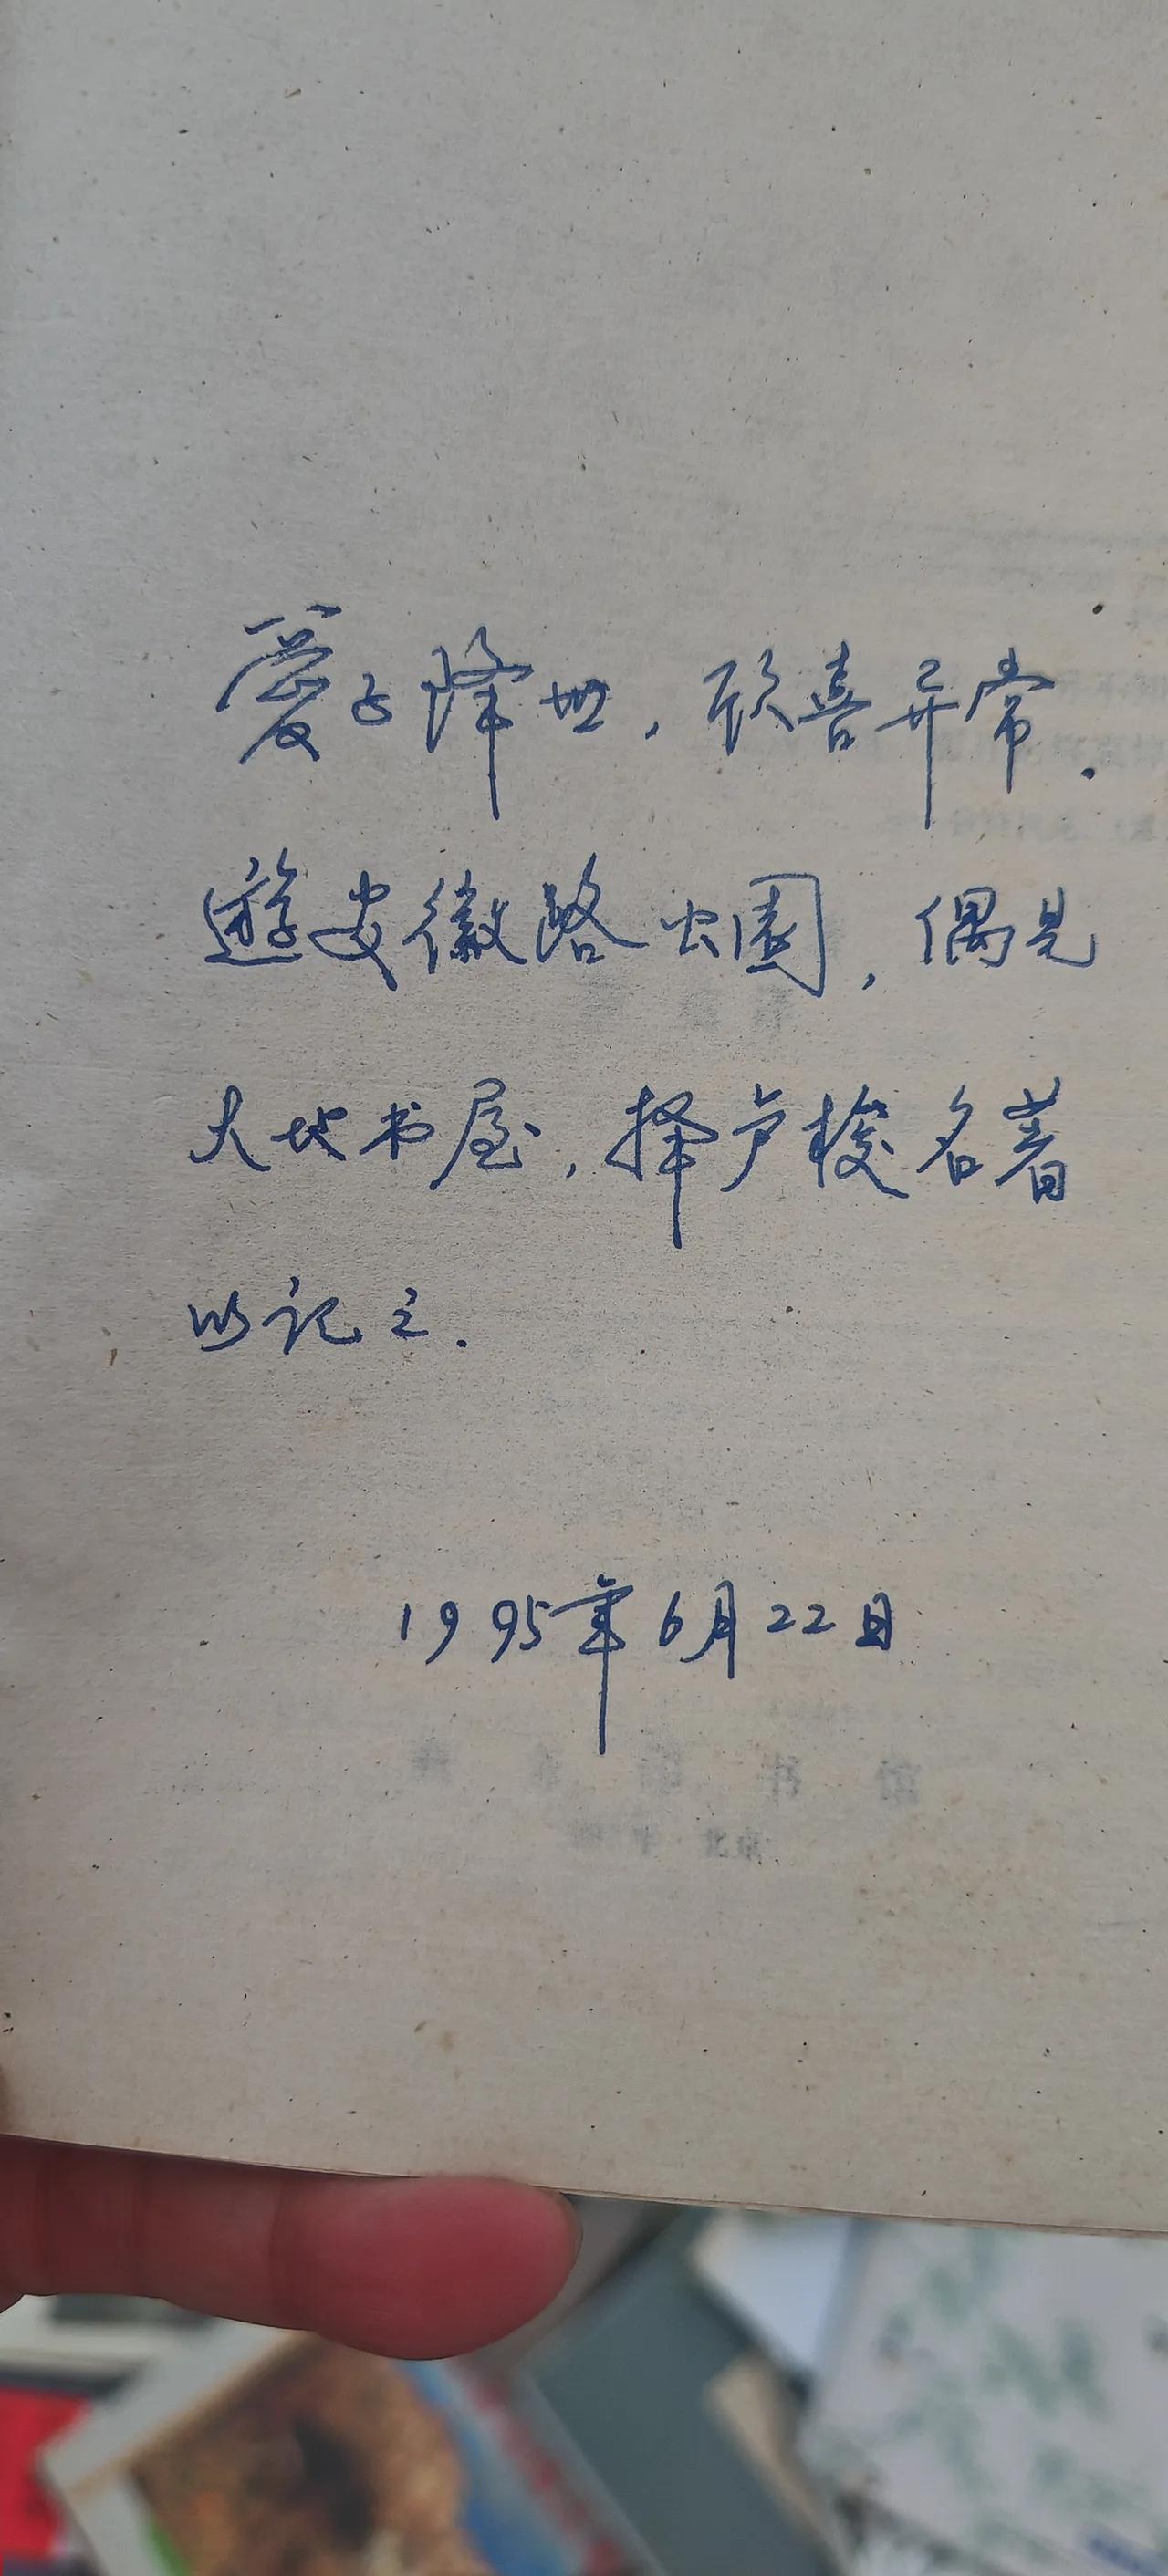 爱子降世，欣喜异常.
遊安徽路公園，偶见
大地书屋，择卢梭名著
以记之.
1995年6月22日